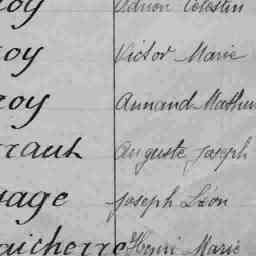 oy Adrien Célestin
oy Victor Marie
roy Armand Mathu
rault Auguste Joseph
vage Joseph Léon
uicherre Henri Marie